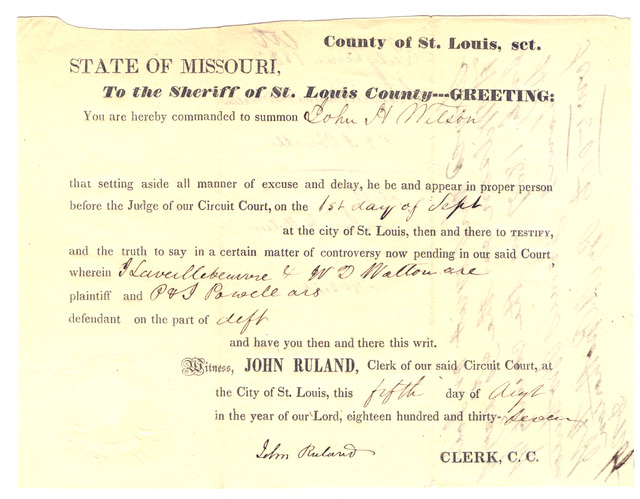 County of St. Louis, sct.
STATE OF MISSOURI,
To the Sheriff of St. Louis County---GREETING:
You are hereby commanded to summon John H Wilson
that setting aside all manner of excuse and delay, he be and appear in proper person
before the Judge of our Circuit Court, on the 1st day of Sept
at the city of St. Louis, then and there to TESTIFY,
and the truth to say in a certain matter of controversy now pending in our said Court
wherein & W D Walton are
plaintiff and P & J Powell ars
defendant on the part of deft
and have you then and there this writ.
Witness, JOHN RULAND, Clerk of our said Circuit Court, at
the City of St. Louis, this fifth day of Augt
in the year of our Lord, eighteen hundred and thirty-seven
John Ruland CLERK, C. C.